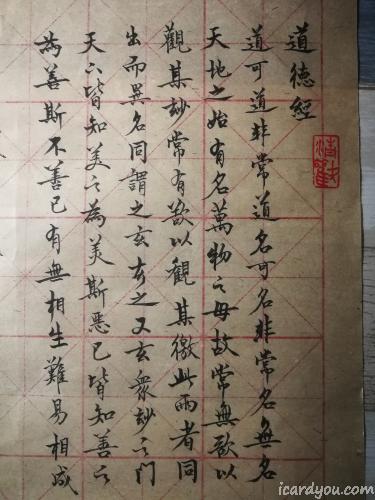 道德經
道可道非常道名可名非常名無名
天地之始有名萬物之母故常無欲以
觀其妙常有欲以觀其徼此兩者同
出而異名同謂之玄玄之又玄衆妙之門
天下皆知美之為美斯惡已皆知善之
為善斯不善已有無相生難易相成
icardyou.com